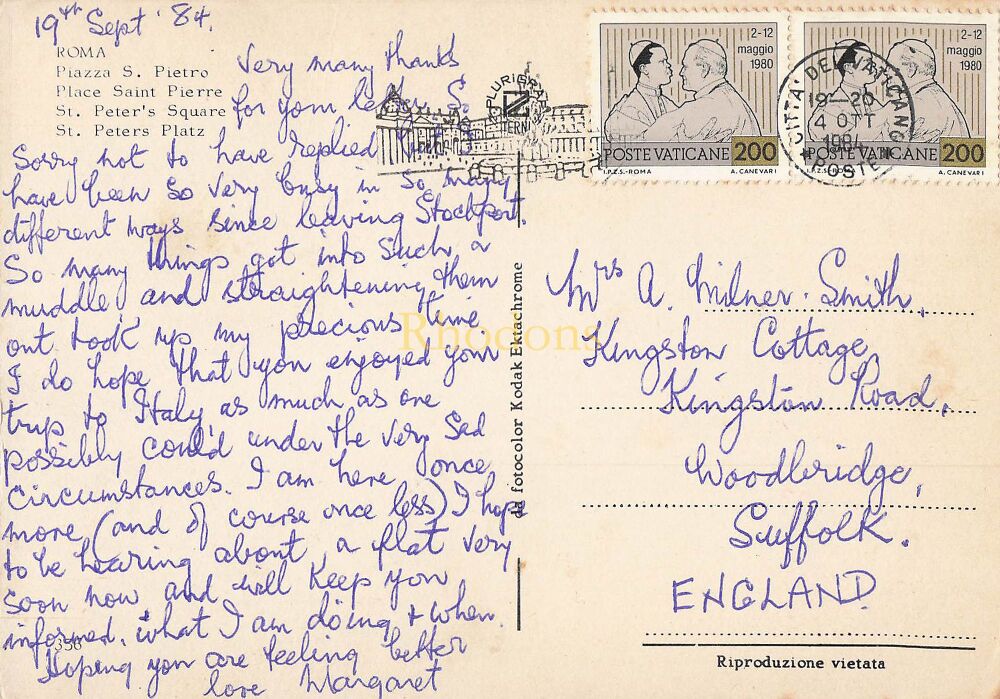 19th Sept '84.
ROMA
Piazza S. Pietro
Place Saint Pierre
St. Peter's Square
St. Peters Platz
Very many thanks
for your letter. So
Sorry not to have replied
have been so very busy in so many
different ways since leaving Stockport.
So many things got into such a
muddle and straightening them
out took up my precious time.
I do hope that you enjoyed your
trip to Italy, as much as one
possibly could under the very sad
circumstances. I am here once
more (and of course once less) I hope
to be hearing about a flat very
soon now and will keep you
informed, what I am doing + when.
Hoping you are feeling better
love Margaret
356
da fotocolor Kodak Ektachrome
Rhodons
2-12
maggio
1980
POSTE VATICANE 200
I.P.Z.S.-ROMA A. CANEVARI
2-12
maggio
1980
POSTE VATICANE 200
A. CANEVARI
CITTA' DEL VATICANO
19-20
4 OTT
1984
POSTE
Mrs A. Milner-Smith,
Kingston Cottage,
Kingston Road,
Woodbridge,
Suffolk.
ENGLAND.
Riproduzione vietata